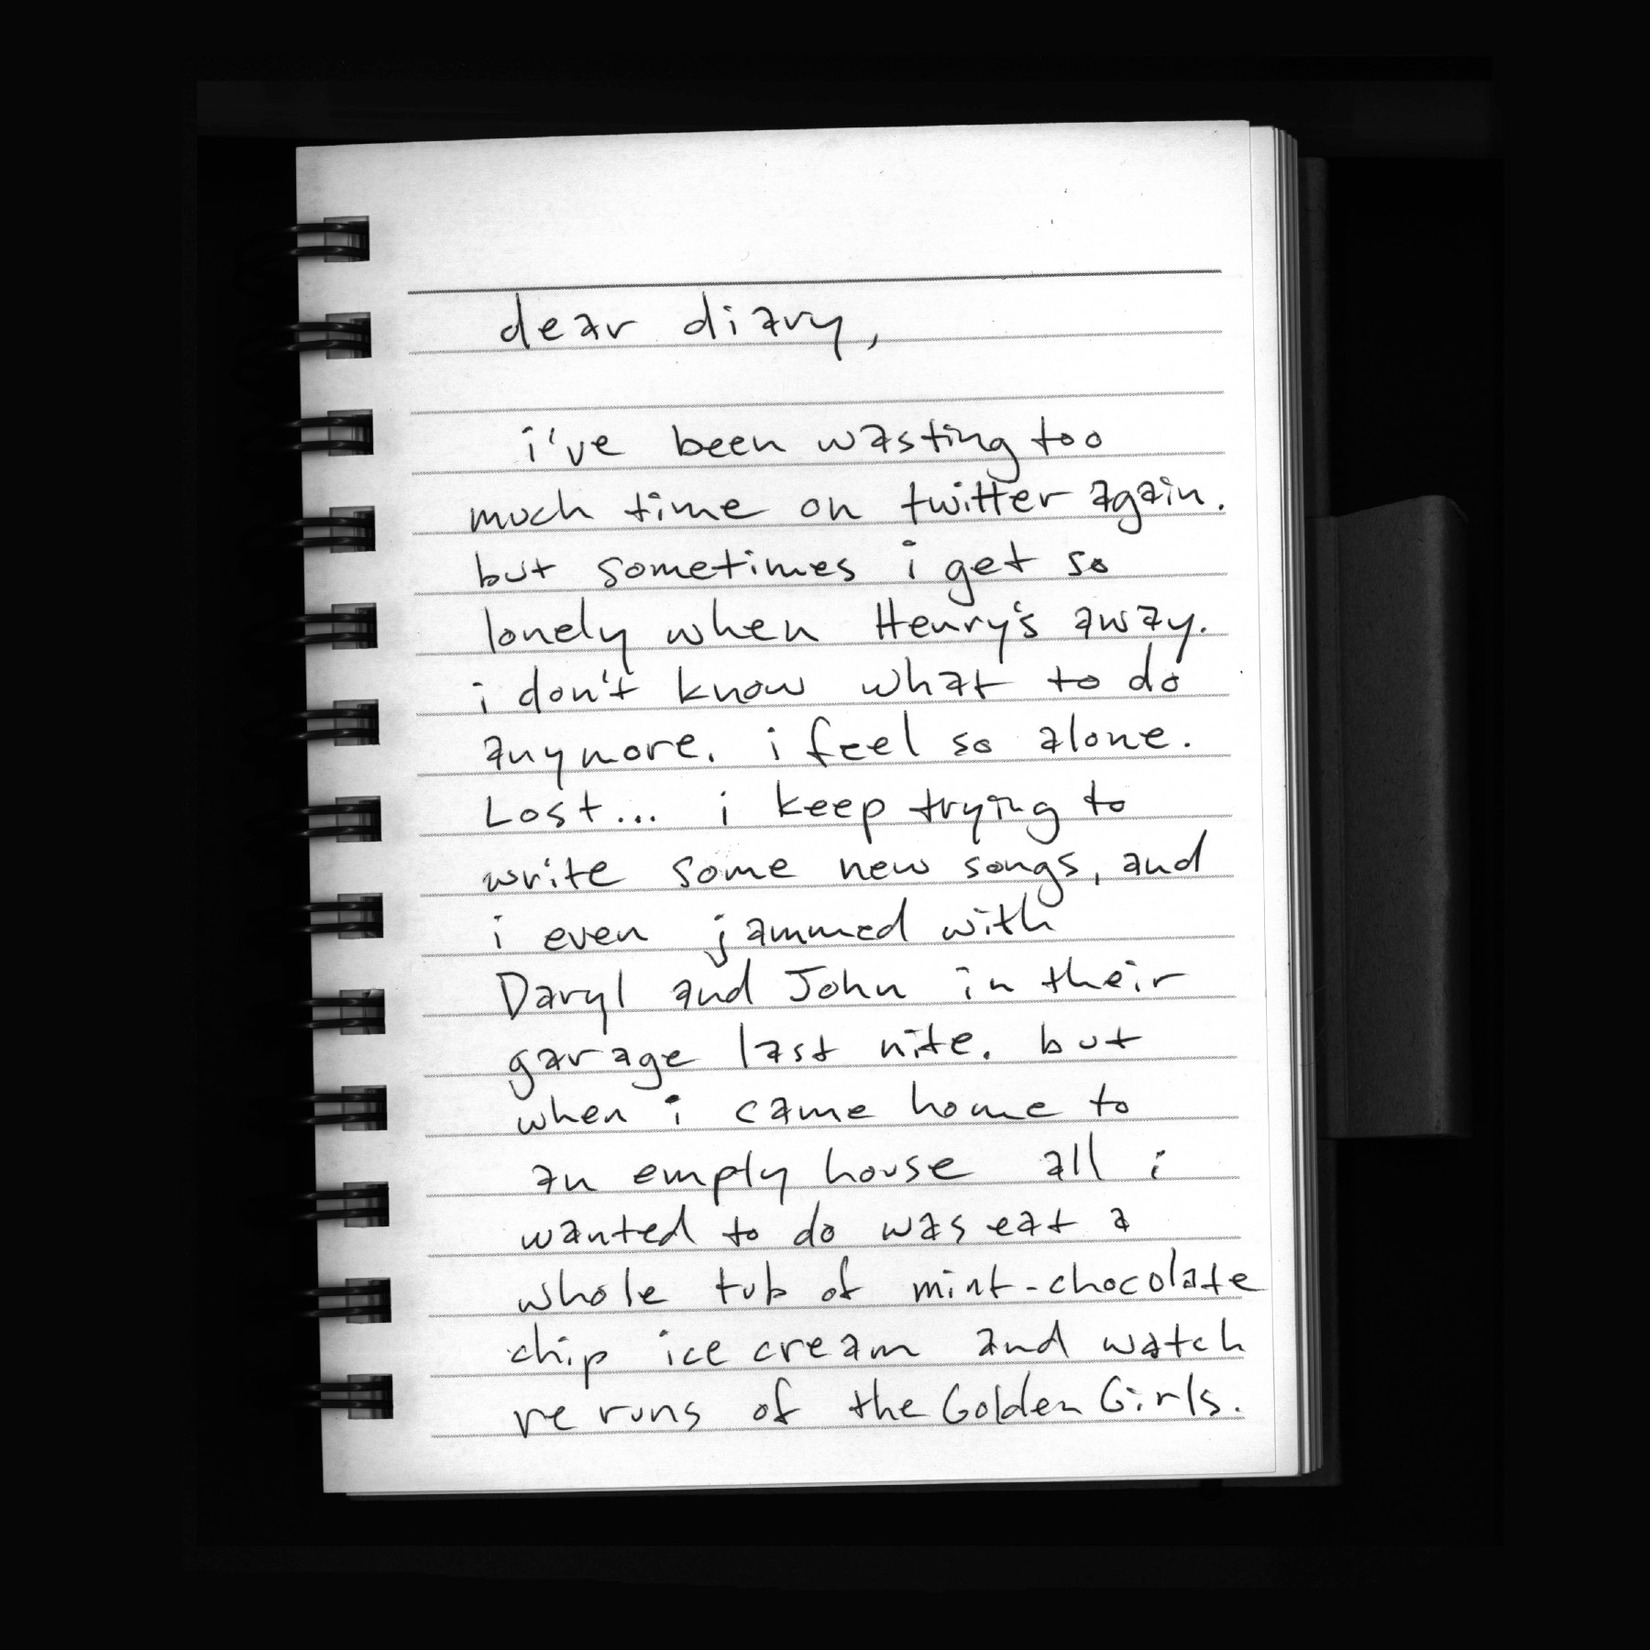 dear diary,
i've been wasting too
much time on twitter again.
but sometimes i get so
lonely when Henry's away.
i don't know what to do
anymore. i feel so alone.
Lost... i keep trying to
write some new songs, and
i even jammed with
Daryl and John in their
garage last nite. but
when i came home to
an empty house all i
wanted to do was eat a
whole tub of mint-chocolate
chip ice cream and watch
re runs of the Golden Girls.